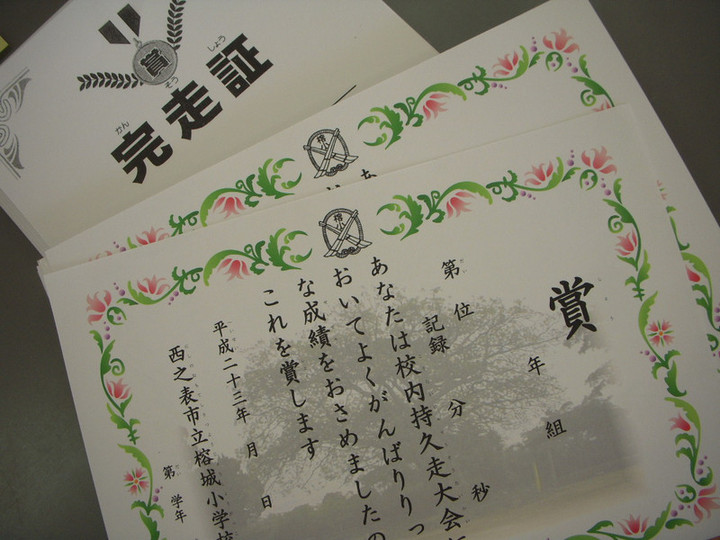 賞
完走証
かん そう しょう
榕小
榕小
賞
年 組
第 位
記録 分 秒
あなたは校内持久走大会に
おいてよくがんばりりっ
な成績をおさめましたの
これを賞します
平成二十三年 月 日
西之表市立榕城小学校
第 学年